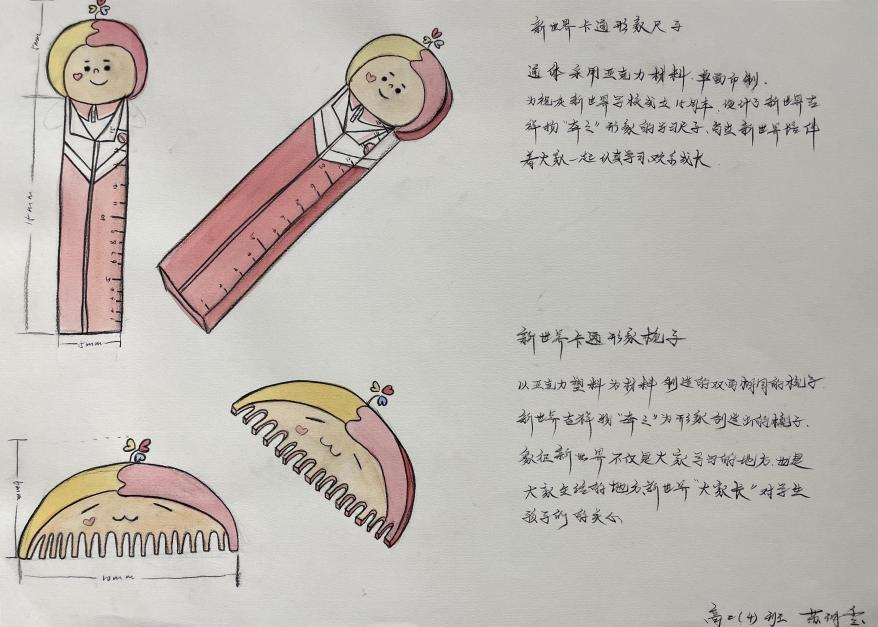 新世界卡通形象尺子
通体采用亚克力材料,单面印制.
为祝贺新世界学校成立15周年,设计了新世界吉
祥物"奔之"形象的学习尺子,寓意新世界陪伴
着大家一起认真学习,欢乐成长
5mm
15mm
5mm
新世界卡通形象梳子
以亚克力塑料为材料制造的双面镜间的梳子
新世界吉祥物"奔之"为形象制造出的梳子.
象征新世界不仅是大家学习的地方,也是
大家生活的地方,新世界"大家长"对学生
孩子们的关心
10mm
高二(4)班